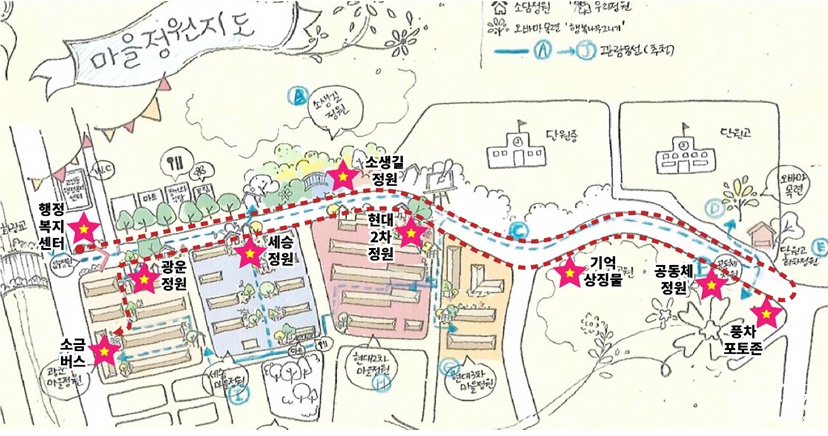 마을정원지도
소담정원
우리정원
오바마목련 '행복나무지기'
A → J 관람동선 (추천)
B
소생길
정원
단원중
단원고
소생길
정원
오바마
목련
W.C
마트
행정
복지
센터
현대
2차
정원
세승
정원
C
D
E
단원고
기억
상징물
공동체
정원
광운
정원
풍차
포토존
소금
버스
광운
마을정원
세승
마을정원
I
현대2차
마을정원
H
현대3차
마을정원